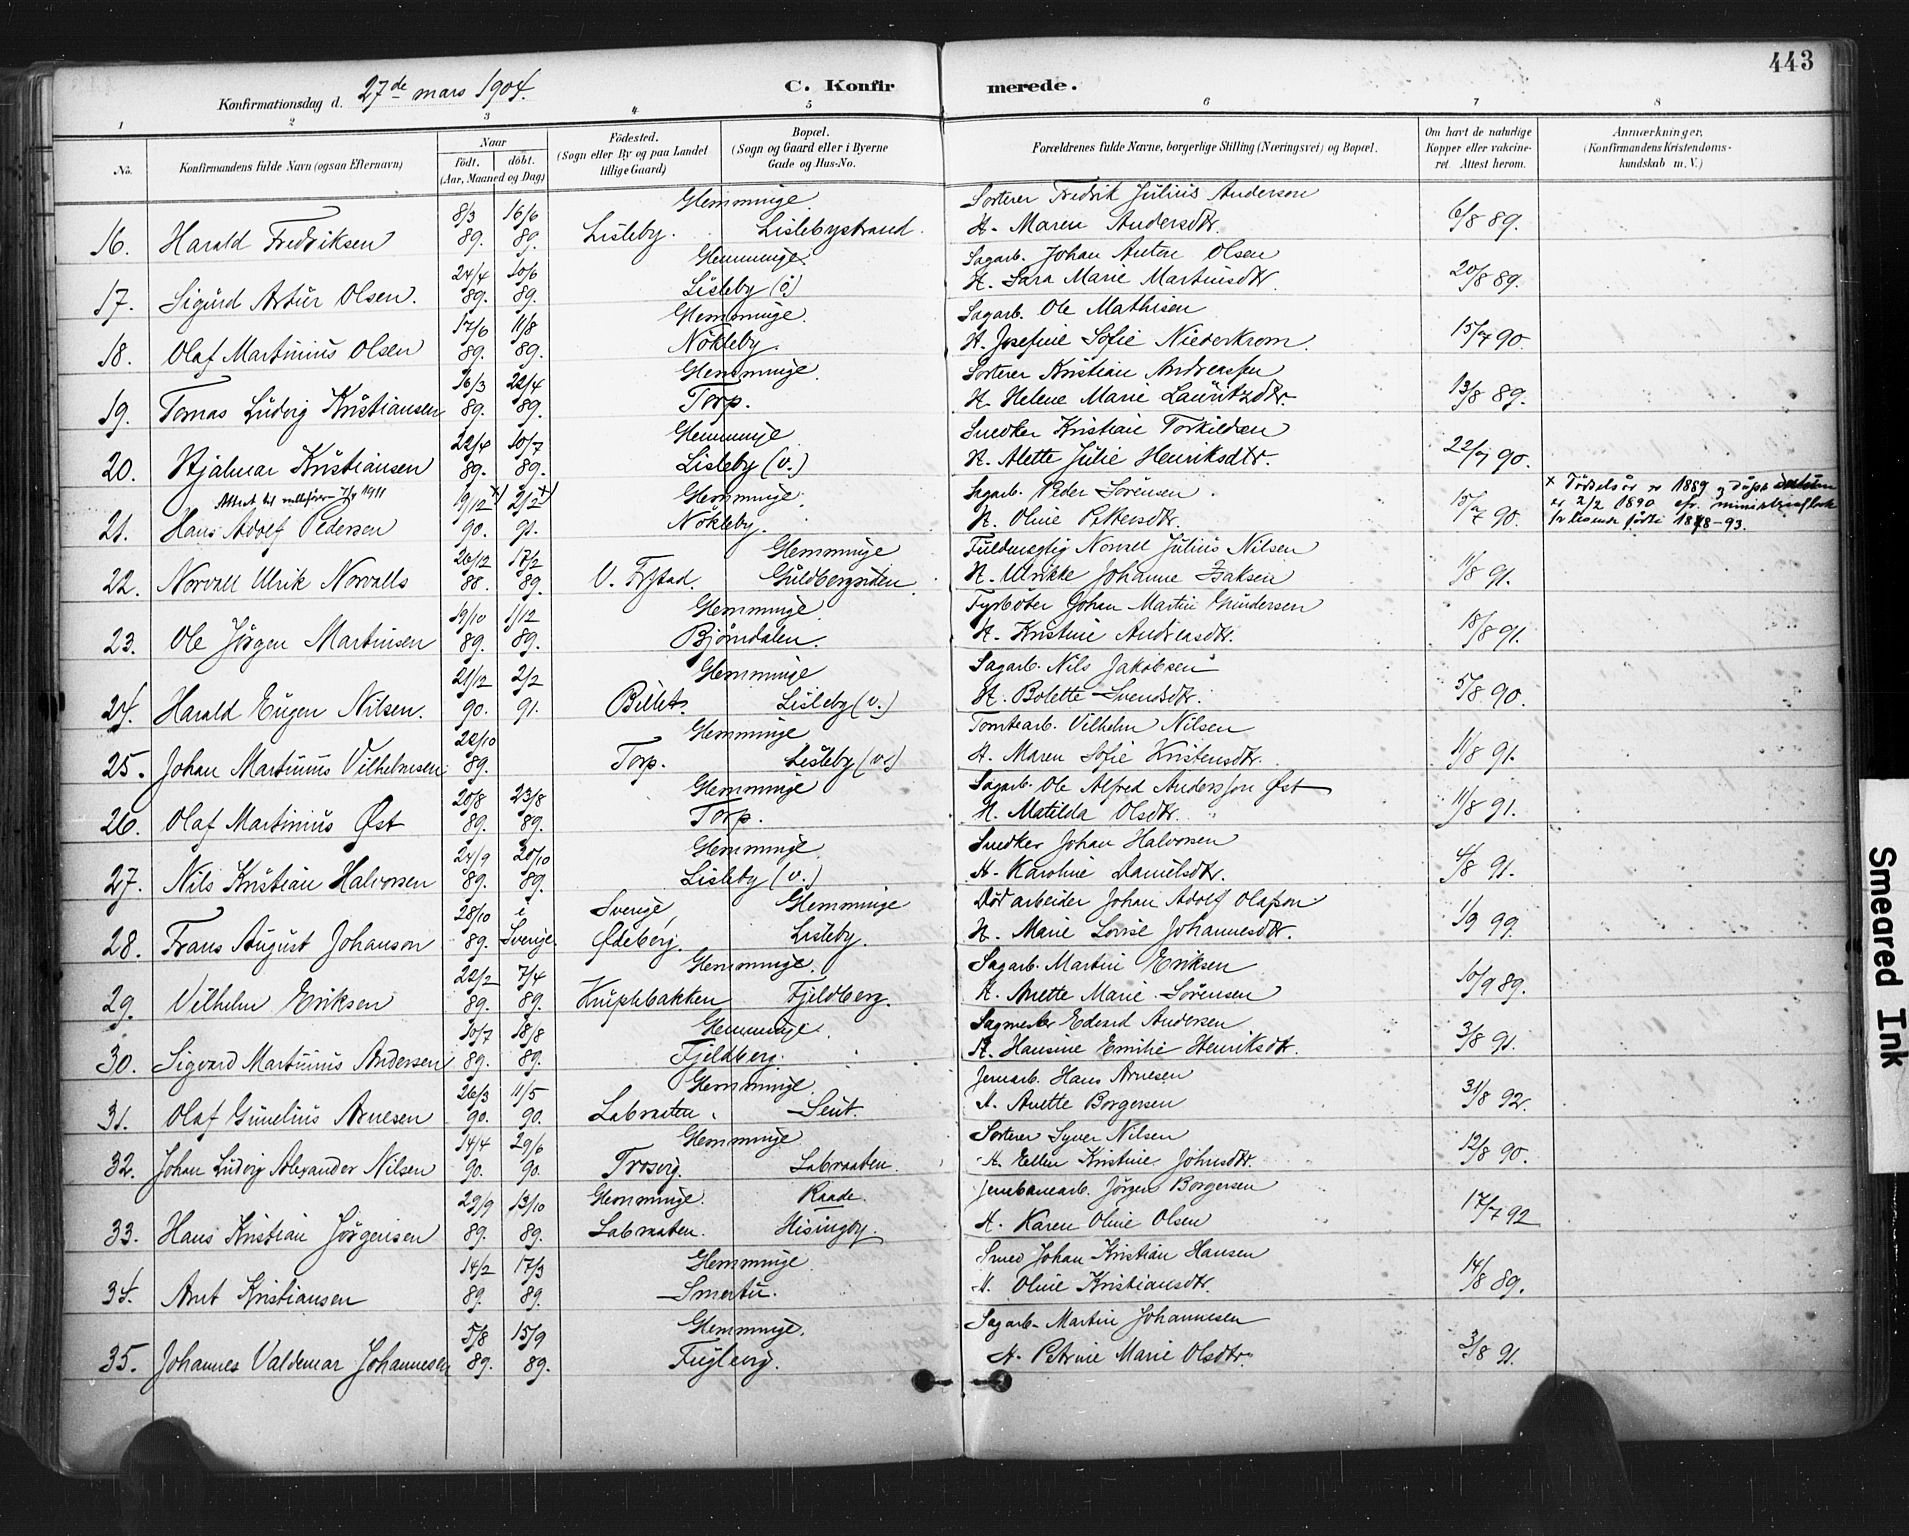 443
Konfirmationsdag d. 27de mars 1904.
C. Konfirmerede.
1 2 3 4 5 6 7 8
No. Konfirmandens fulde Navn (ogsaa Efternavn) Naar födt. döbt. (Aar, Maaned og Dag) Födested. (Sogn eller By og paa Landet tillige Gaard) Bopæl. (Sogn og Gaard eller i Byerne Gade og Hus-No. Forældrenes fulde Navne, borgerlige Stilling (Næringsvei) og Bopæl. Om havt de naturlige Kopper eller vakcineret. Attest herom. Anmærkninger. (Konfirmandens Kristendomskundskab m. V.)
8/3 16/6 Glemminge. Sorterer Fredrik Julius Anderson
16. Harald Fredriksen 89. 89. Lisleby. Lislebystrand. H. Maren Andersdtr. 6/8 89.
24/4 10/6 Glemminge. Sagarb. Johan Anton Olsen
17. Sigurd Artur Olsen. 89. 89. Lisleby (ö) H. Sara Marie Martinsdtr. 20/8 89.
17/6 11/8 Glemminge. Sagarb. Ole Mathisen
18. Olaf Martinius Olsen 89. 89. Nökleby. H. Josefine Sofie Niederkrom. 15/7 90.
16/3 22/4 Glemminge. Sorterer Kristian Andreassen
19. Tomas Ludvig Kristiansen 89. 89. Torp. H. Helene Marie Lauritzdtr. 13/8 89.
22/4 10/7 Glemminge Snedker Kristian Torkildsen
20. Hjalmar Kristiansen 89. 89. Lisleby (v.) H. Alette Julie Henriksdtr. 22/7 90.
19/12 x) 2/2 x) Glemminge Sagarb. Peder Sörensen x Födselsår er 1889 og dåps datum
21. Hans Adolf Pedersen 90. 91. Nökleby. H. Oline Pettersdtr. 15/7 90. er 2/2 1890
26/12 17/2 Glemminge Fuldmægtig Norvall Julius Nilsen
22. Norvall Ulrik Norvalls 88. 89. Guldbergsiden. H. Ulrikke Johanne Isaksen 11/8 91.
19/10 1/12 Glemminge Fyrböter Johan Martin Gundersen
23. Ole Jörgen Martinsen 89. 89. Björndalen. H. Kristine Andreasdtr. 18/8 91.
21/12 2/2 Glemminge Sagarb. Nils Jakobsen
24. Harald Eugen Nilsen. 90. 91. Billet. Lisleby (v.) H. Bolette Svendsdtr. 5/8 90.
22/10 Glemminge Tomtearb. Vilhelm Nilsen
25. Johan Martinius Vilhelmsen 89. Torp. Lisleby (v.) H. Maren Sofie Kristensdtr. 11/8 91.
20/8 23/8 Glemminge Sagarb. Ole Alfred Andersson Øst
26. Olaf Martinius Øst 89. 89. Torp. H. Matilda Olsdtr. 11/8 91.
24/9 20/10 Glemminge Snedker Johan Halvorsen
27. Nils Kristian Halvorsen 89. 89. Lisleby (v.) H. Karoline Danielsdtr. 4/8 91.
28/10 i Sverige, Glemminge Död arbeider Johan Adolf Olafson
28. Frans August Johanson 89. Sverige Ødeborg. Lisleby. H. Marie Lovise Johannesdtr. 1/9 99.
22/2 7/4 Glemminge. Sagarb. Martin Eriksen
29. Vilhelm Eriksen 89. 89. Kniplebakken Fjeldberg. H. Anette Marie Sörensen 10/9 89.
10/7 18/8 Glemminge. Sagmester Edvard Andersen
30. Sigvard Martinius Andersen 89. 89. Fjeldberg. H. Hansine Emilie Henriksdtr. 3/8 91.
26/3 11/5 Glemminge Jernarb. Hans Arnesen
31. Olaf Gunelius Arnesen 90. 90. Labraaten. Seut. H. Anette Borgersen 31/8 92.
14/4 29/6 Glemminge Sorterer Syver Nilsen
32. Johan Ludvig Alexander Nilsen 90. 90. Trosvig. Labraaten. H. Ellen Kristine Johnsdtr. 12/8 90.
29/9 13/10 Glemminge. Raade. Jernbanearb. Jörgen Borgersen
33. Hans Kristian Jörgensen 89. 89. Labraaten. Hisingby. H. Karen Oline Olsen 17/7 92
14/2 17/3 Glemminge Smed Johan Kristian Hansen
34. Arnt Kristiansen 89. 89. Smertu. H. Oline Kristiansdtr. 14/8 89.
5/8 15/9 Glemminge. Sagarb. Martin Johannesen
35. Johannes Valdemar Johannesen 89. 89. Fuglevig. H. Petrine Marie Olsdtr. 3/8 91.
Smeared Ink